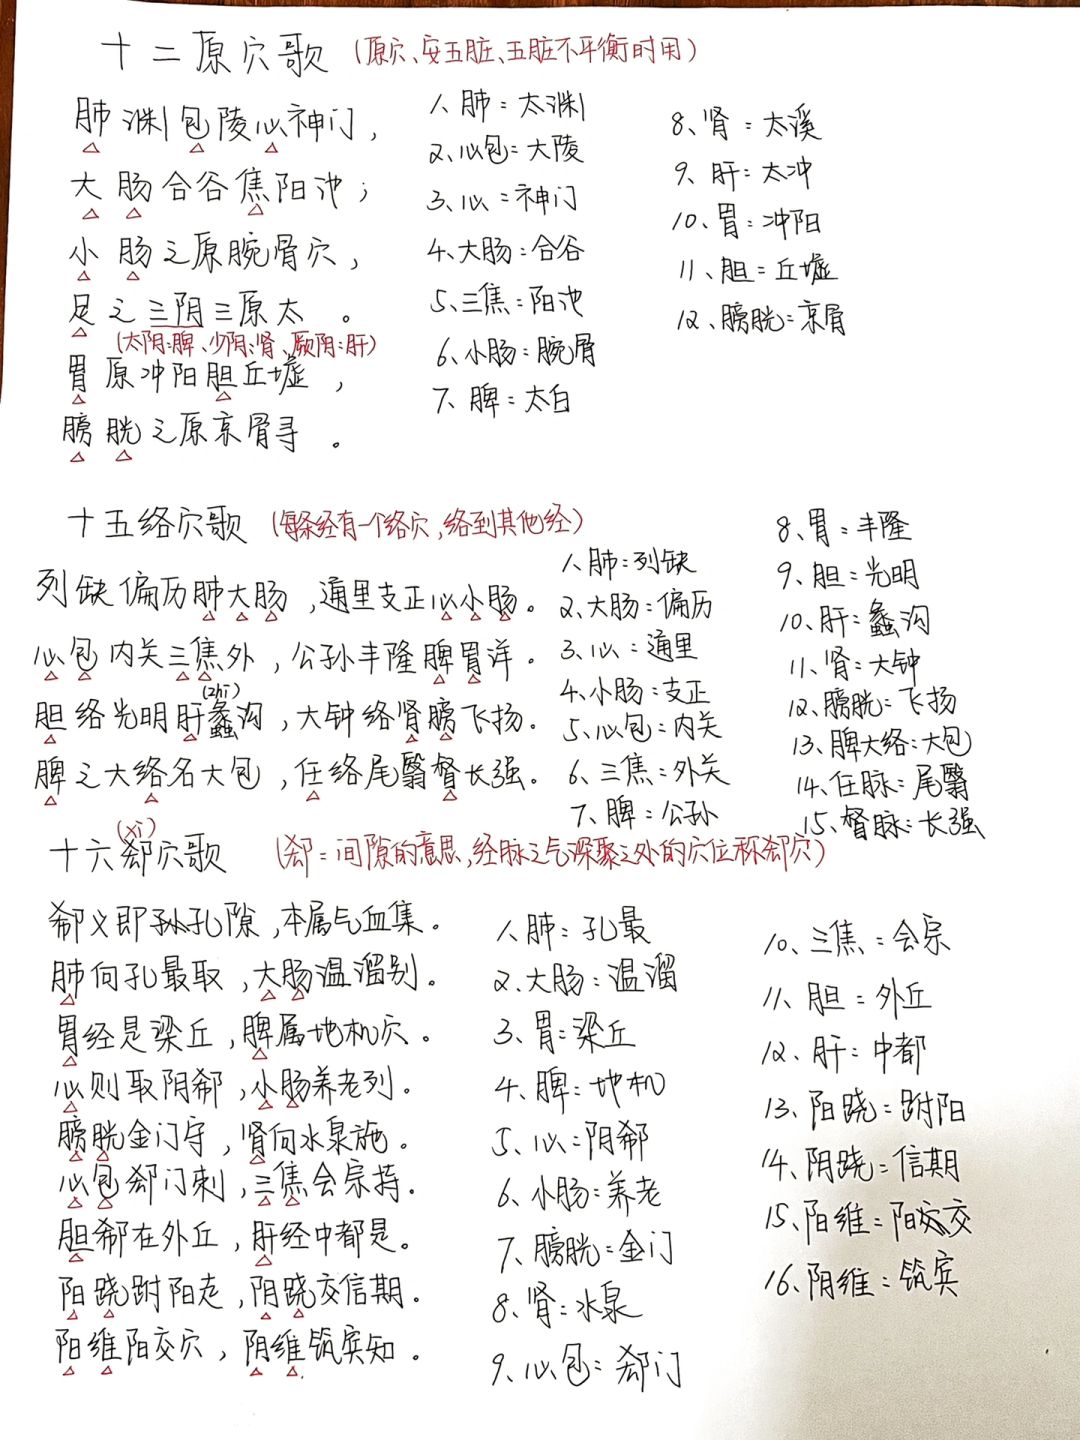 十二原穴歌（原穴、安五脏、五脏不平衡时用）
肺渊包陵心神门，
大肠合谷焦阳池；
小肠之原腕骨穴，
足之三阴三原太。
（太阴：脾、少阴：肾、厥阴：肝）
胃原冲阳胆丘墟，
膀胱之原京骨寻。
1、肺：太渊
2、心包：大陵
3、心：神门
4、大肠：合谷
5、三焦：阳池
6、小肠：腕骨
7、脾：太白
8、肾：太溪
9、肝：太冲
10、胃：冲阳
11、胆：丘墟
12、膀胱：京骨
十五络穴歌（每条经有一个络穴，络到其他经）
列缺偏历肺大肠，通里支正心小肠。
心包内关三焦外，公孙丰隆脾胃详。
(zhī)
胆络光明肝蠡沟，大钟络肾膀飞扬。
脾之大络名大包，任络尾翳督长强。
1、肺：列缺
2、大肠：偏历
3、心：通里
4、小肠：支正
5、心包：内关
6、三焦：外关
7、脾：公孙
8、胃：丰隆
9、胆：光明
10、肝：蠡沟
11、肾：大钟
12、膀胱：飞扬
13、脾大络：大包
14、任脉：尾翳
15、督脉：长强
(xì)
十六郄穴歌（郄：间隙的意思，经脉之气深聚之处的穴位称郄穴）
郄义即孔隙，本属气血集。
肺向孔最取，大肠温溜别。
胃经是梁丘，脾属地机穴。
心则取阴郄，小肠养老列。
膀胱金门守，肾向水泉施。
心包郄门刺，三焦会宗持.
胆郄在外丘，肝经中都是。
阳跷跗阳走，阴跷交信期.
阳维阳交穴，阴维筑宾知。
1、肺：孔最
2、大肠：温溜
3、胃：梁丘
4、脾：地机
5、心：阴郄
6、小肠：养老
7、膀胱：金门
8、肾：水泉
9、心包：郄门
10、三焦：会宗
11、胆：外丘
12、肝：中都
13、阳跷：跗阳
14、阴跷：信期
15、阳维：阳交
16、阴维：筑宾